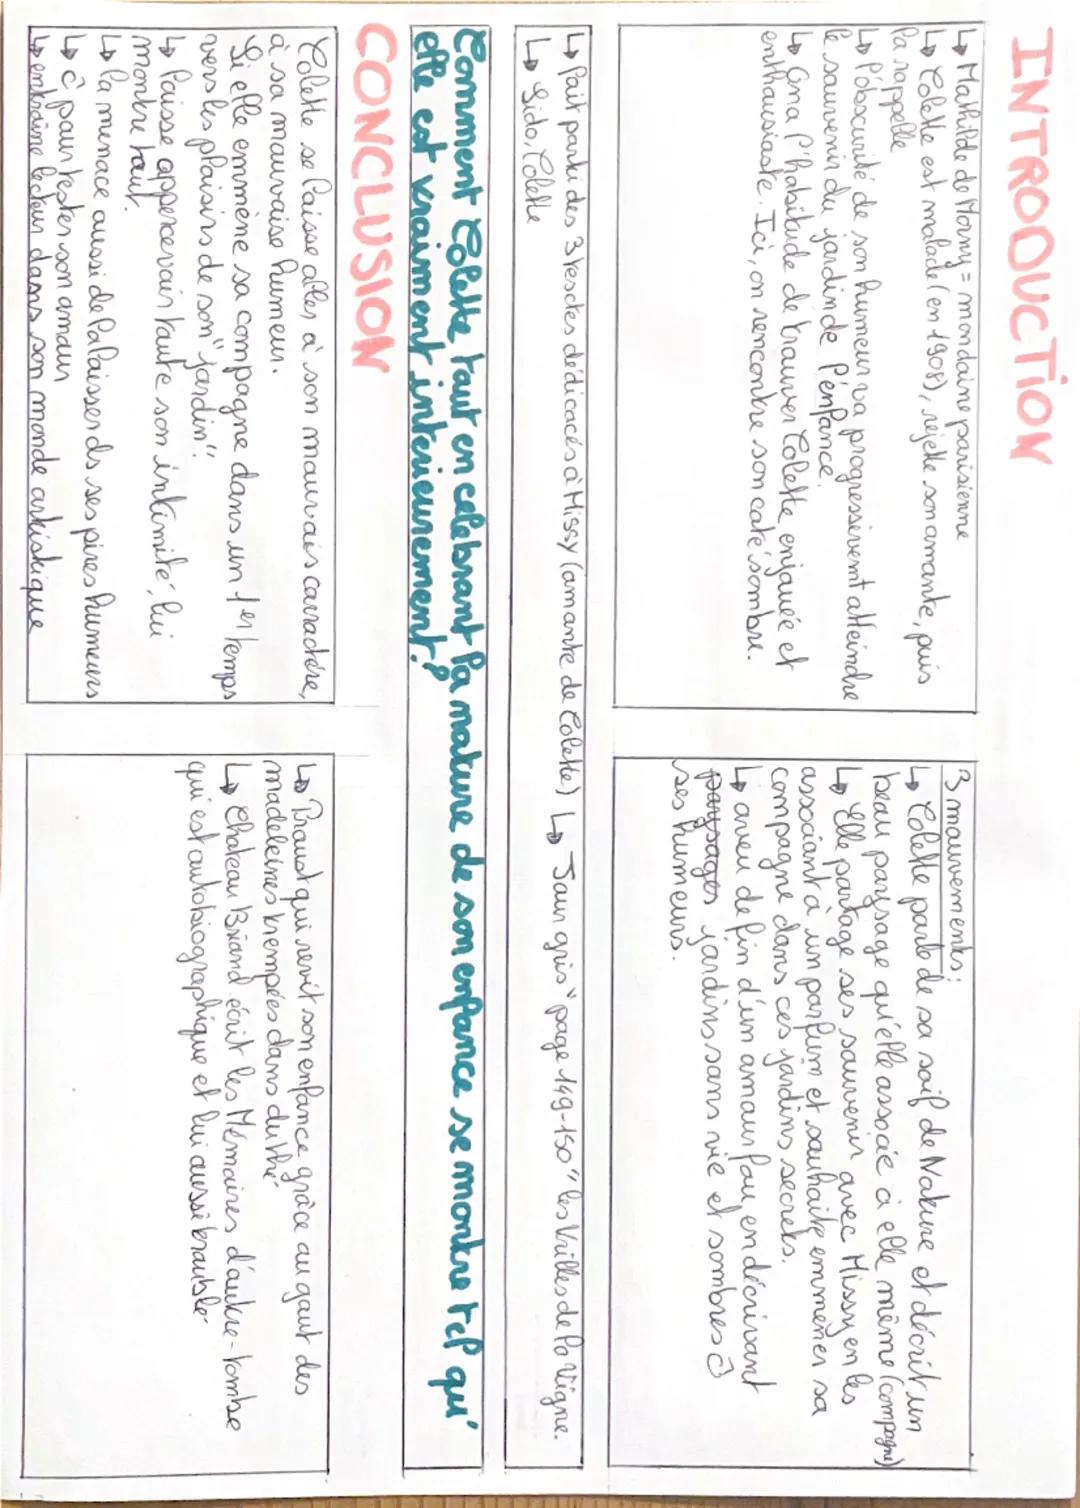 INTRODUCTION
↳ Mathilde de Morny = mondaine parisienne
↳ Colette est malade (en 1908), rejette son amante, puis
la rappelle
↳ l'obscurité de son humeur va progressivement atteindre
le souvenir du jardin de l'enfance.
↳ On a l'habitude de trouver Colette enjouée et
enthousiaste. Ici, on rencontre son coté sombre.
3 mouvements:
↳ Colette parle de sa soif de Nature et décrit un
beau paysage qu'elle associe à elle même (campagne)
↳ Elle partage ses souvenir avec Missy en les
associant à un parfum et souhaite emmener sa
compagne dans ces jardins secrets.
↳ aveu de fin d'un amour fou en décrivant
paysages jardins sans vie et sombres
ses humeurs.
↳ Fait parti des 3 textes dédicacés à Missy (amante de Colette)
↳ Sido, Colette
↳ Jour gris" page 149-150 "les Vrilles de la Vigne.
Comment Colette tout en celebrant la nature de son enfance se montre tel qu'
elle est vraiment interieurement?
CONCLUSION
Colette se laisse aller à son mauvais carractère,
à sa mauvaise humeur.
Si elle emmène sa compagne dans un 1er temps
vers les plaisirs de son "jardin".
↳ laisse appercevoir toute son intimité, lui
montre tout.
↳ la menace aussi de la laisser ds ses pires humeurs
↳ c̄ pour tester son amour
↳ entraine lecteur dans son monde artistique
↳ Proust qui revit son enfance grâce au gout des
madeleines trempées dans du thé
↳ Chateau Briand écrit les Mémoires d'outre-tombe
qui est autobiographique et lui aussi trouble